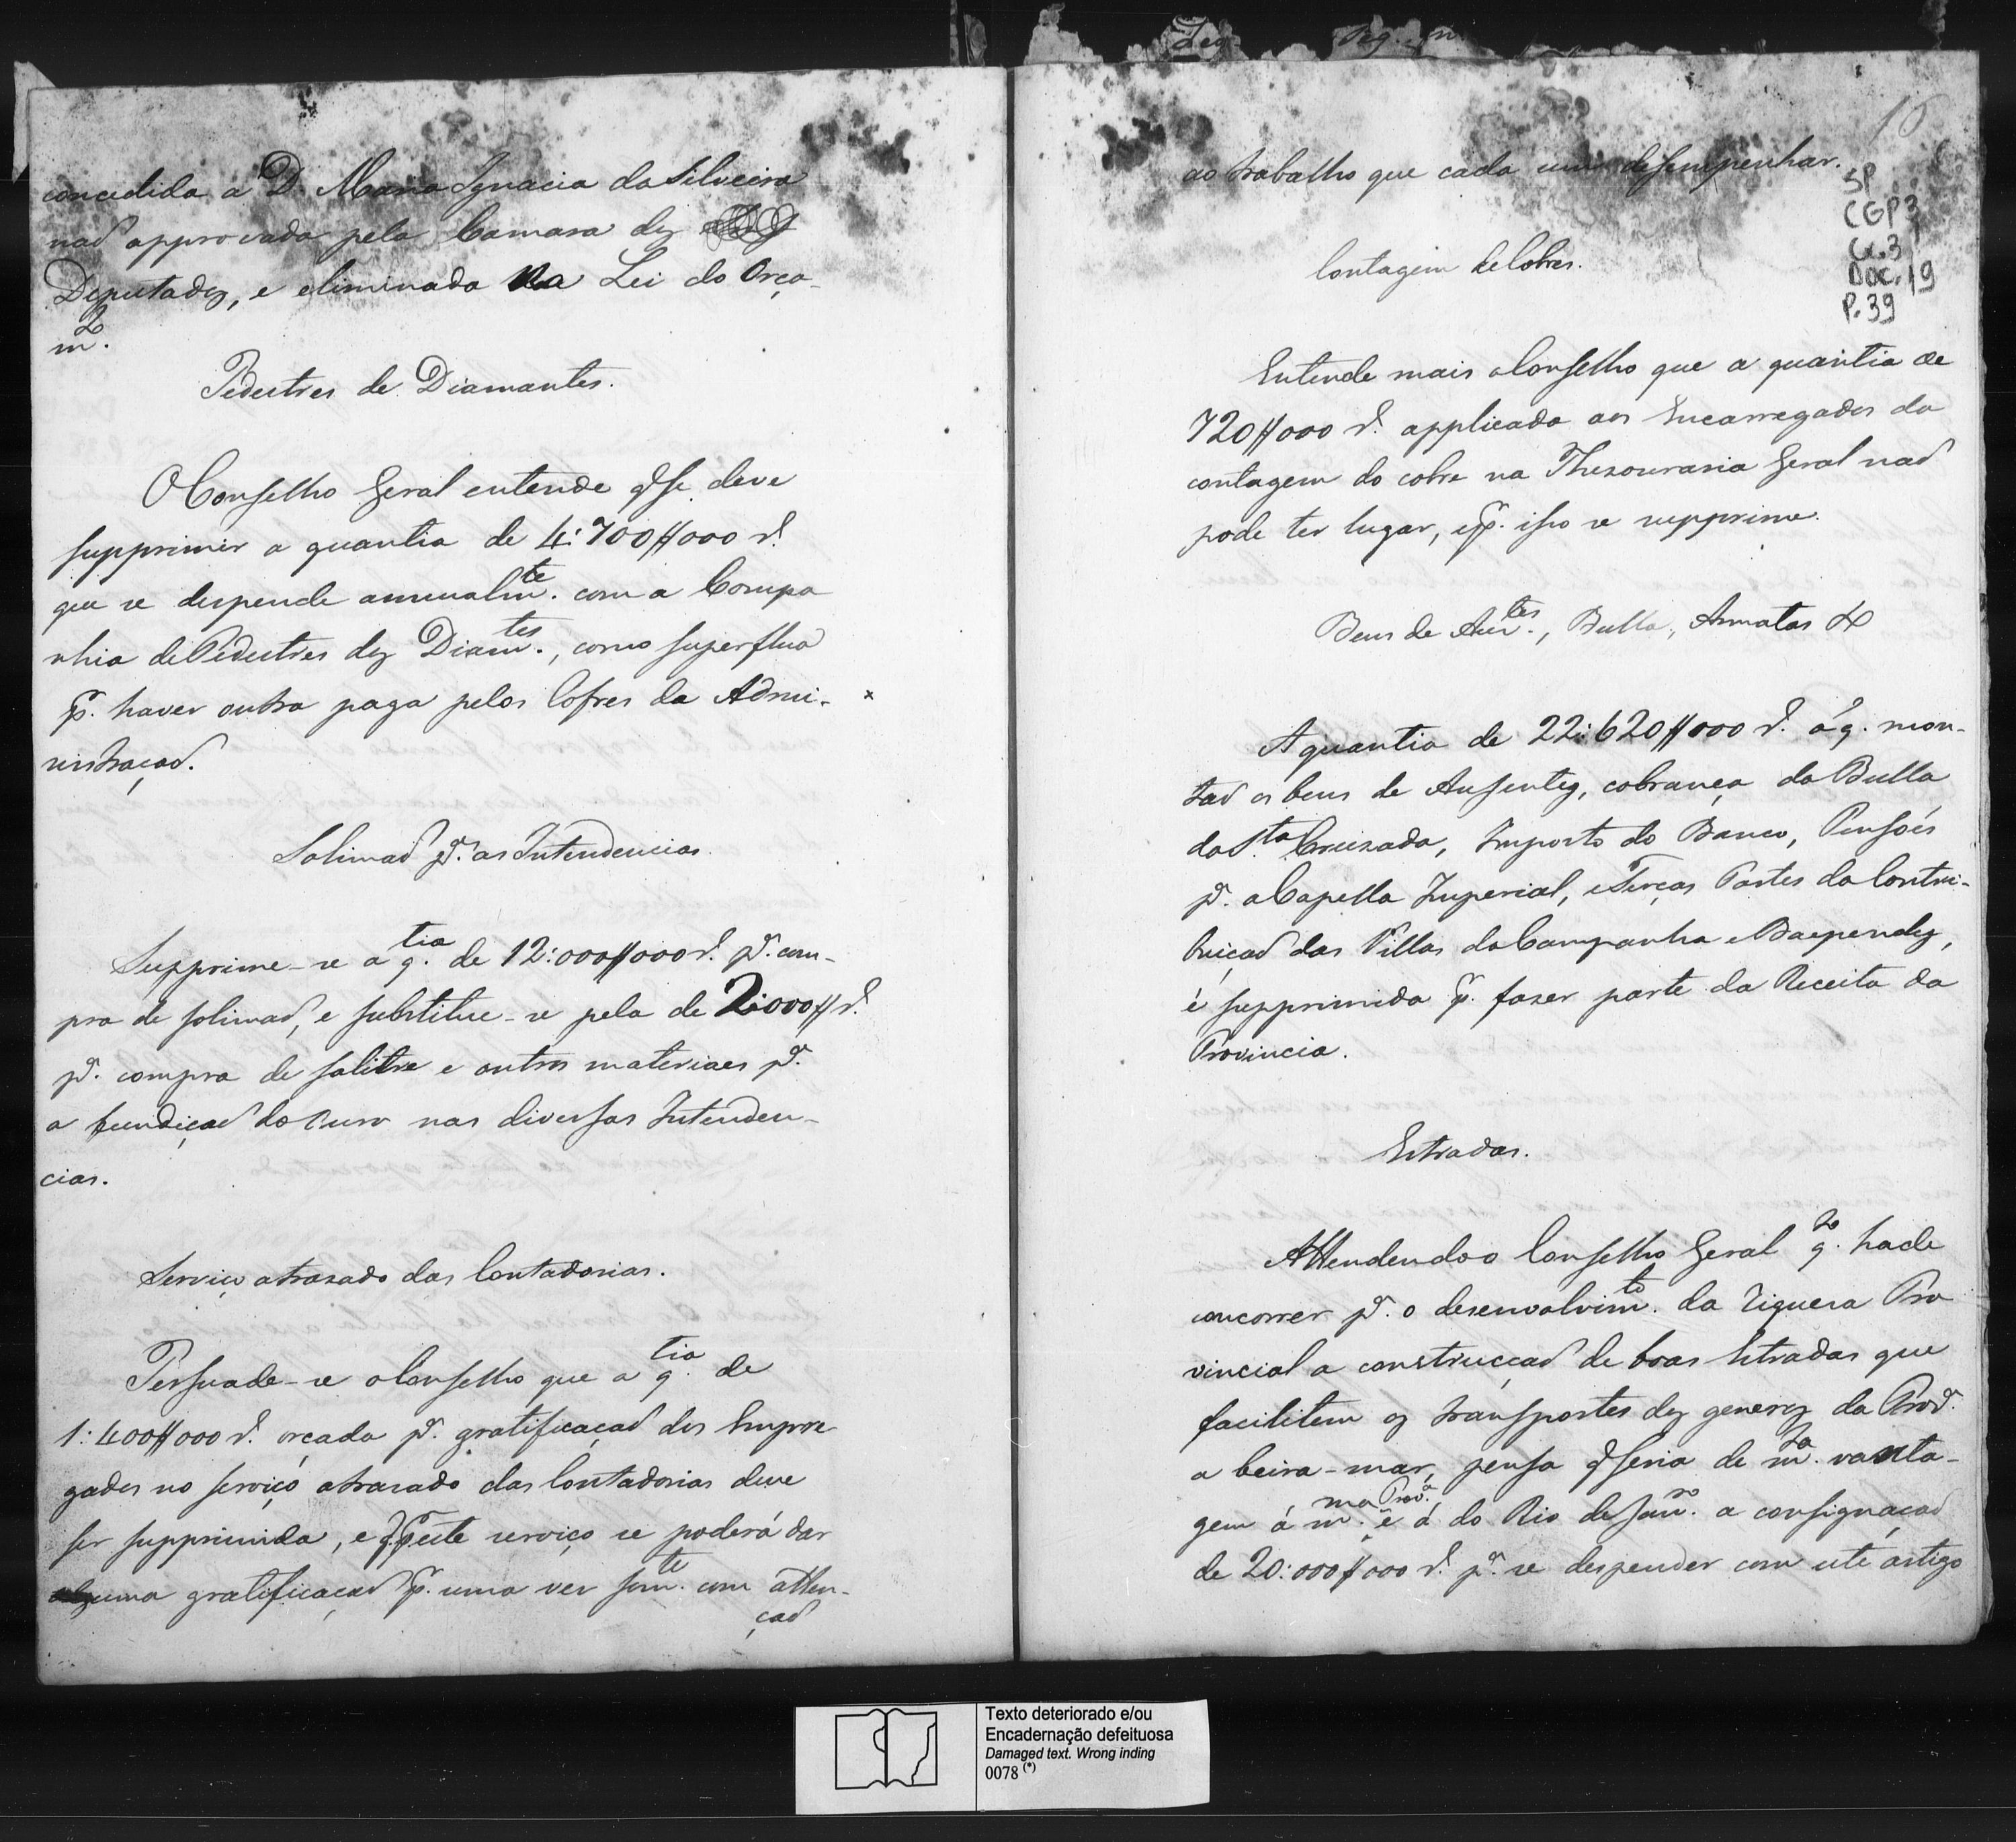 concedida a D. Maria Ignacia da Silveira
naõ approvada pela Camara dos
Deputados, e eliminada na Lei do Orça-
m.to
Pedestres de Diamantes.
O Conselho Geral entende q̃ se deve
supprimir a quantia de 4:700$000 r.
que se despende annualm.te com a Compa
nhia de Pedestres dos Diam.tes, como superflua
p.r haver outra paga pelos Cofres da Admi-
nistraçaõ.
Solimaõ p.a as Intendencias.
Supprime-se a q.tia de 12:000$000 r. p.a com-
pra de solimaõ, e substitue-se pela de 2:000$ r.
p.a compra de salitre e outros materiaes p.a
a fundiçaõ do ouro nas diversas Intenden-
cias.
Serviço atrasado das Contadorias.
Persuade-se o Conselho que a q.tia de
1:400$000 r. orçada p.a gratificaçaõ dos Empre
gados no serviço atrasado das Contadorias deve
ser supprimida, e p.r este serviço se poderá dar
alguma gratificaçaõ p.r uma vez som.te com atten-
çaõ
16
ao trabalho que cada um desempenhar.
SP
CGP3
Cx.3
Doc.19
P.39
Contagem de Cobres.
Entende mais o Conselho que a quantia de
720$000 r. applicada aos Encarregados da
contagem do cobre na Thesouraria Geral naõ
pode ter lugar, e p.r isso se supprime.
Bens de Auz.tes, Bulla, Armatas &
A quantia de 22:620$000 r. á q. mon-
taõ os bens de Ausentes, cobrança da Bulla
da S.ta Cruzada, Imposto do Banco, Pensões
p.a a Capella Imperial, e Terças Partes da Contri-
buiçaõ das Villas da Campanha e Baependy,
é supprimida p.r fazer parte da Receita da
Provincia.
Estradas.
Attendendo o Conselho Geral q.to hade
concorrer p.a o desenvolvim.to da riqueza Pro
vincial a construcçaõ de boas Estradas que
facilitem os transportes dos generos da Prov.a
a beira-mar, pensa q̃ seria de m.ta vanta-
gem á m.ma Prov.a e á do Rio de Jan.ro a consignaçaõ
de 20:000$000 r. p.a se despender com este artigo
Texto deteriorado e/ou
Encadernação defeituosa
Damaged text. Wrong inding
0078 (*)